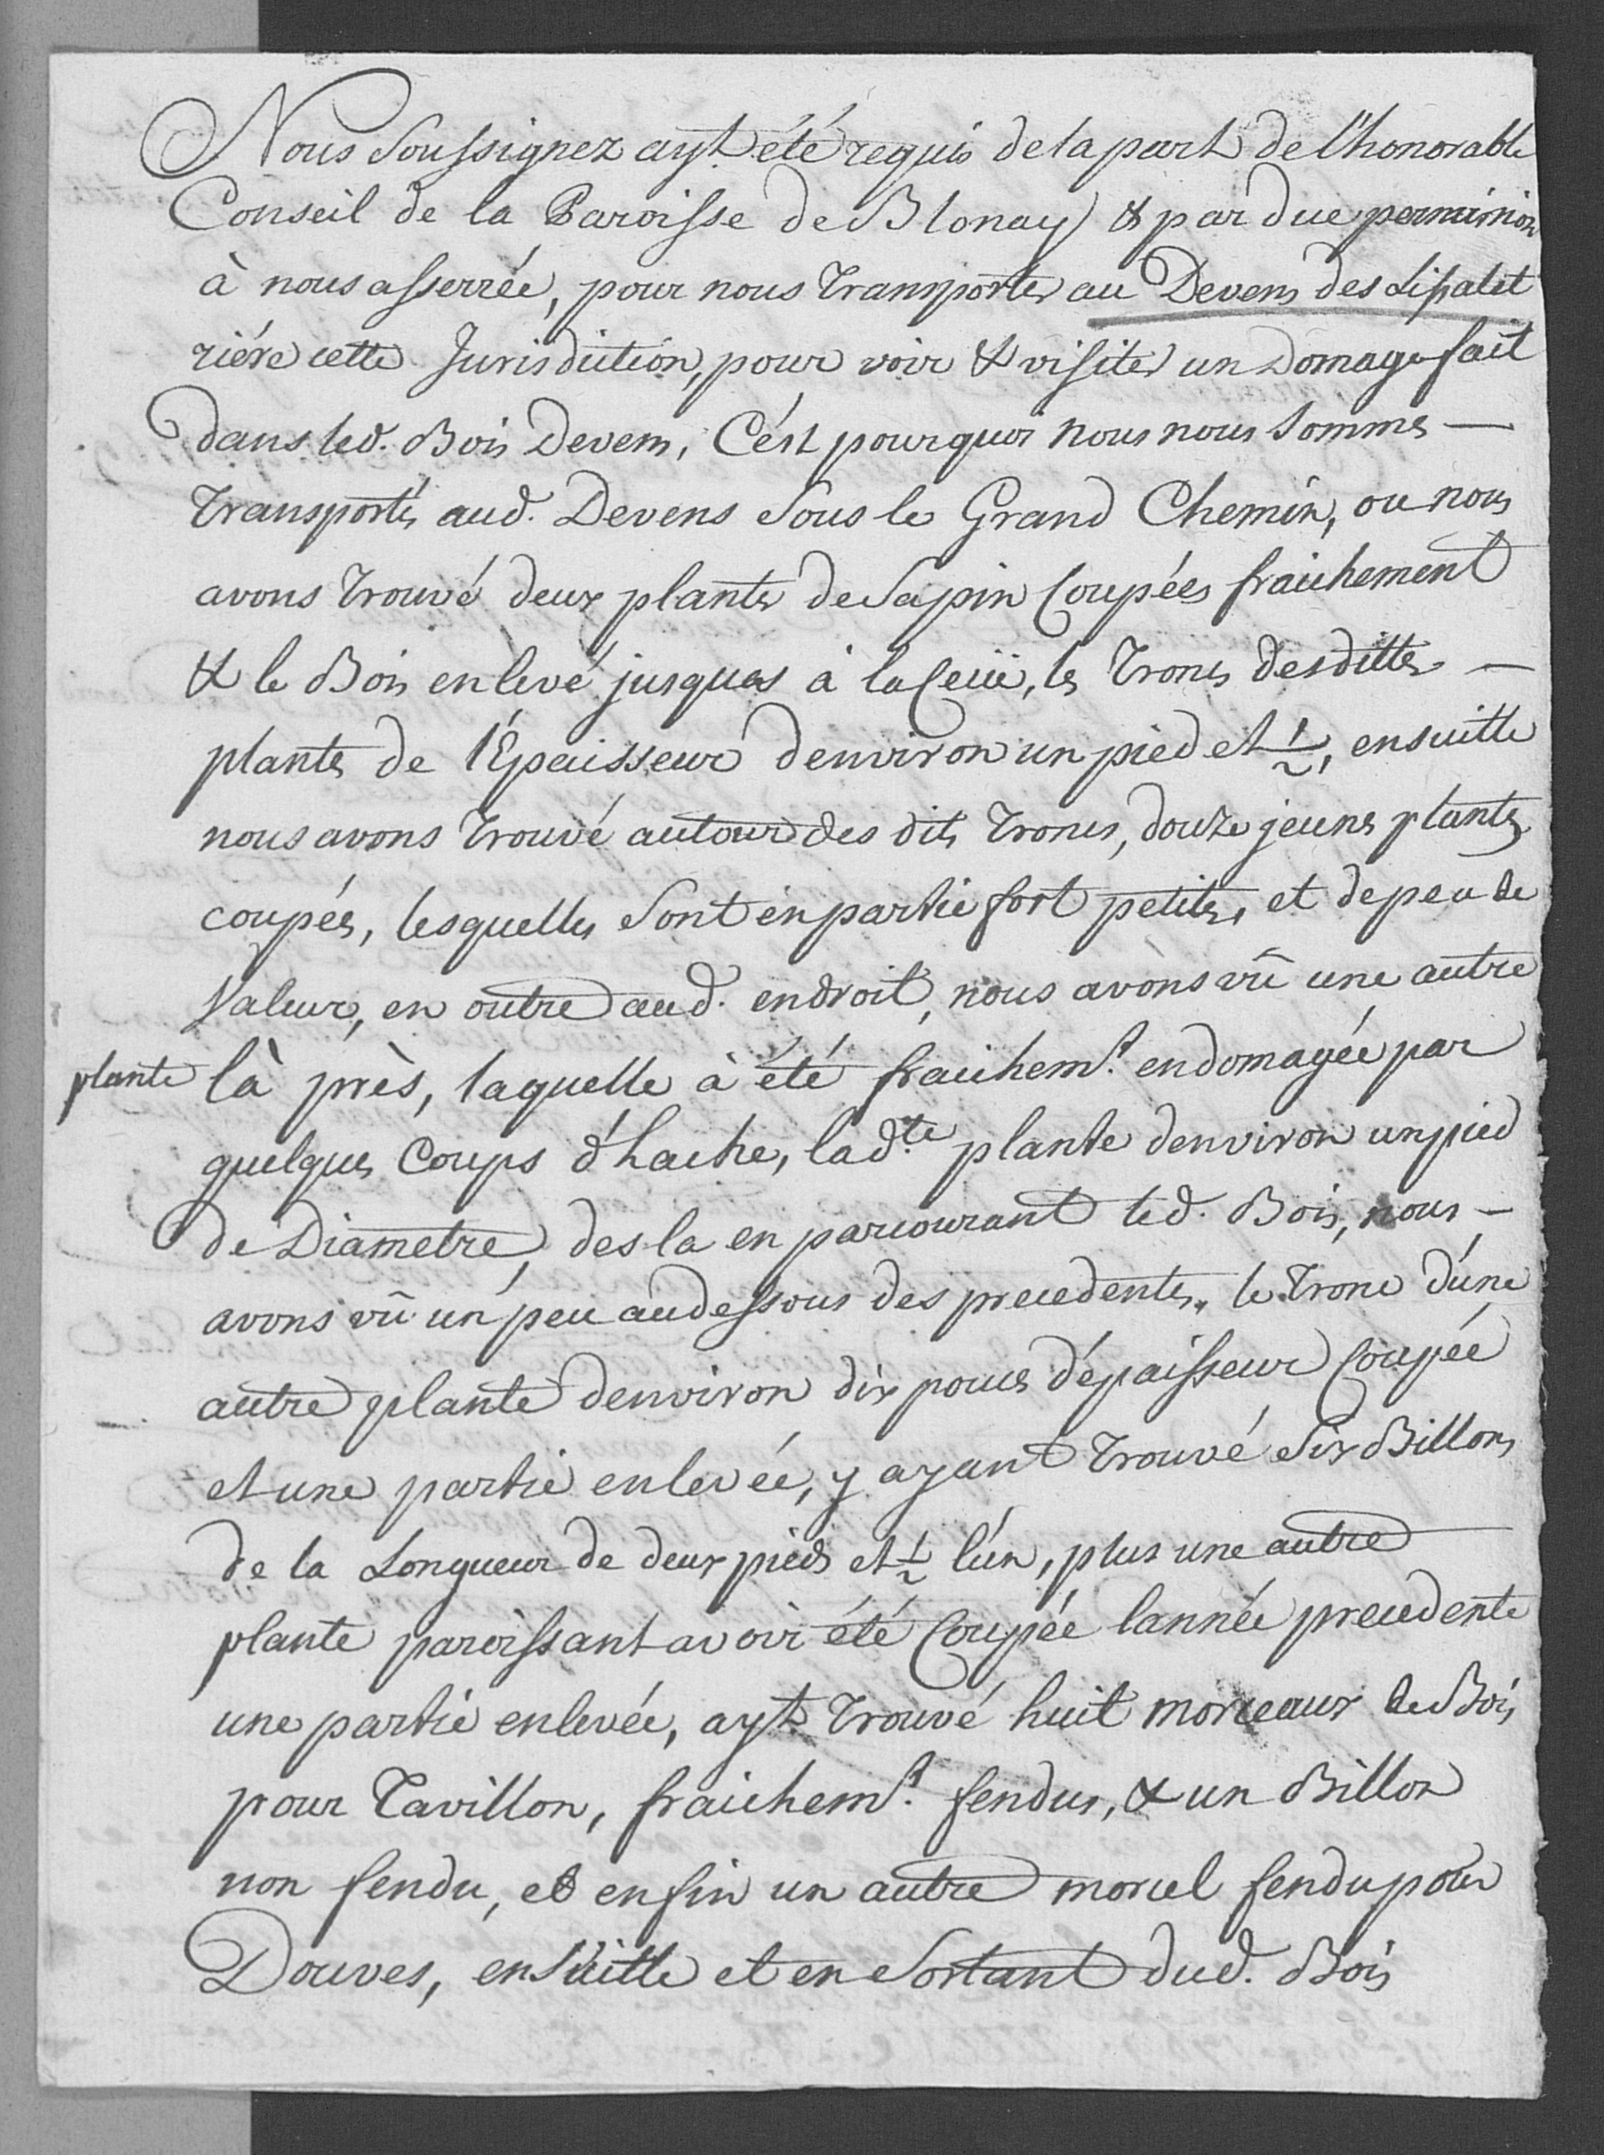 Nous Soussignez ayt. été requis de la part de l'honorable
Conseil de la Paroisse de Blonay & par due permission
à nous asserrée, pour nous Transporter au Devens des
riére cette Jurisdiction, pour voir & visiter un Domage fait
dans led. Bois Devens, C'ést pourquoi nous nous Sommes —
Transportés aud. Devens Sous le Grand Chemin, ou nous
avons Trouvé deux plantes de Sapin Coupées fraichement
& le Bois enlevé jusques à la Ceüe, les Troncs desdittes —
plantes de l'Épaisseur denviron un pied et 1/2, ensuitte
nous avons Trouvé autour des dits Troncs, douze jeunes plantes
coupées, lesquelles Sont en partie fort petites, et de peu de
Valeur, en outre aud. endroit, nous avons vû une autre
plante là près, laquelle à été fraichemt. endomagée par
quelques Coups d'hache, lad.te plante denviron un pied
de Diametre, des la en parcourant led. Bois, nous —
avons vû un peu audessous des precedentes, le Tronc d'úne
autre plante denviron dix pouces d'épaisseur Coupée
et une partie enlevée, y ayant Trouvé Six Billons
de la Longueur de deux pieds et 1/2 l'ún, plus une autre
plante paroissant avoir été Coupée lannée precedente
une partie enlevée, ayt. Trouvé huit morceaux de Bois
pour Tavillon, fraichemt. fendus, & un Billon
non fendu, et enfin un autre morcel fendu pour
Douves, ensuitte et en Sortant dud. Bois